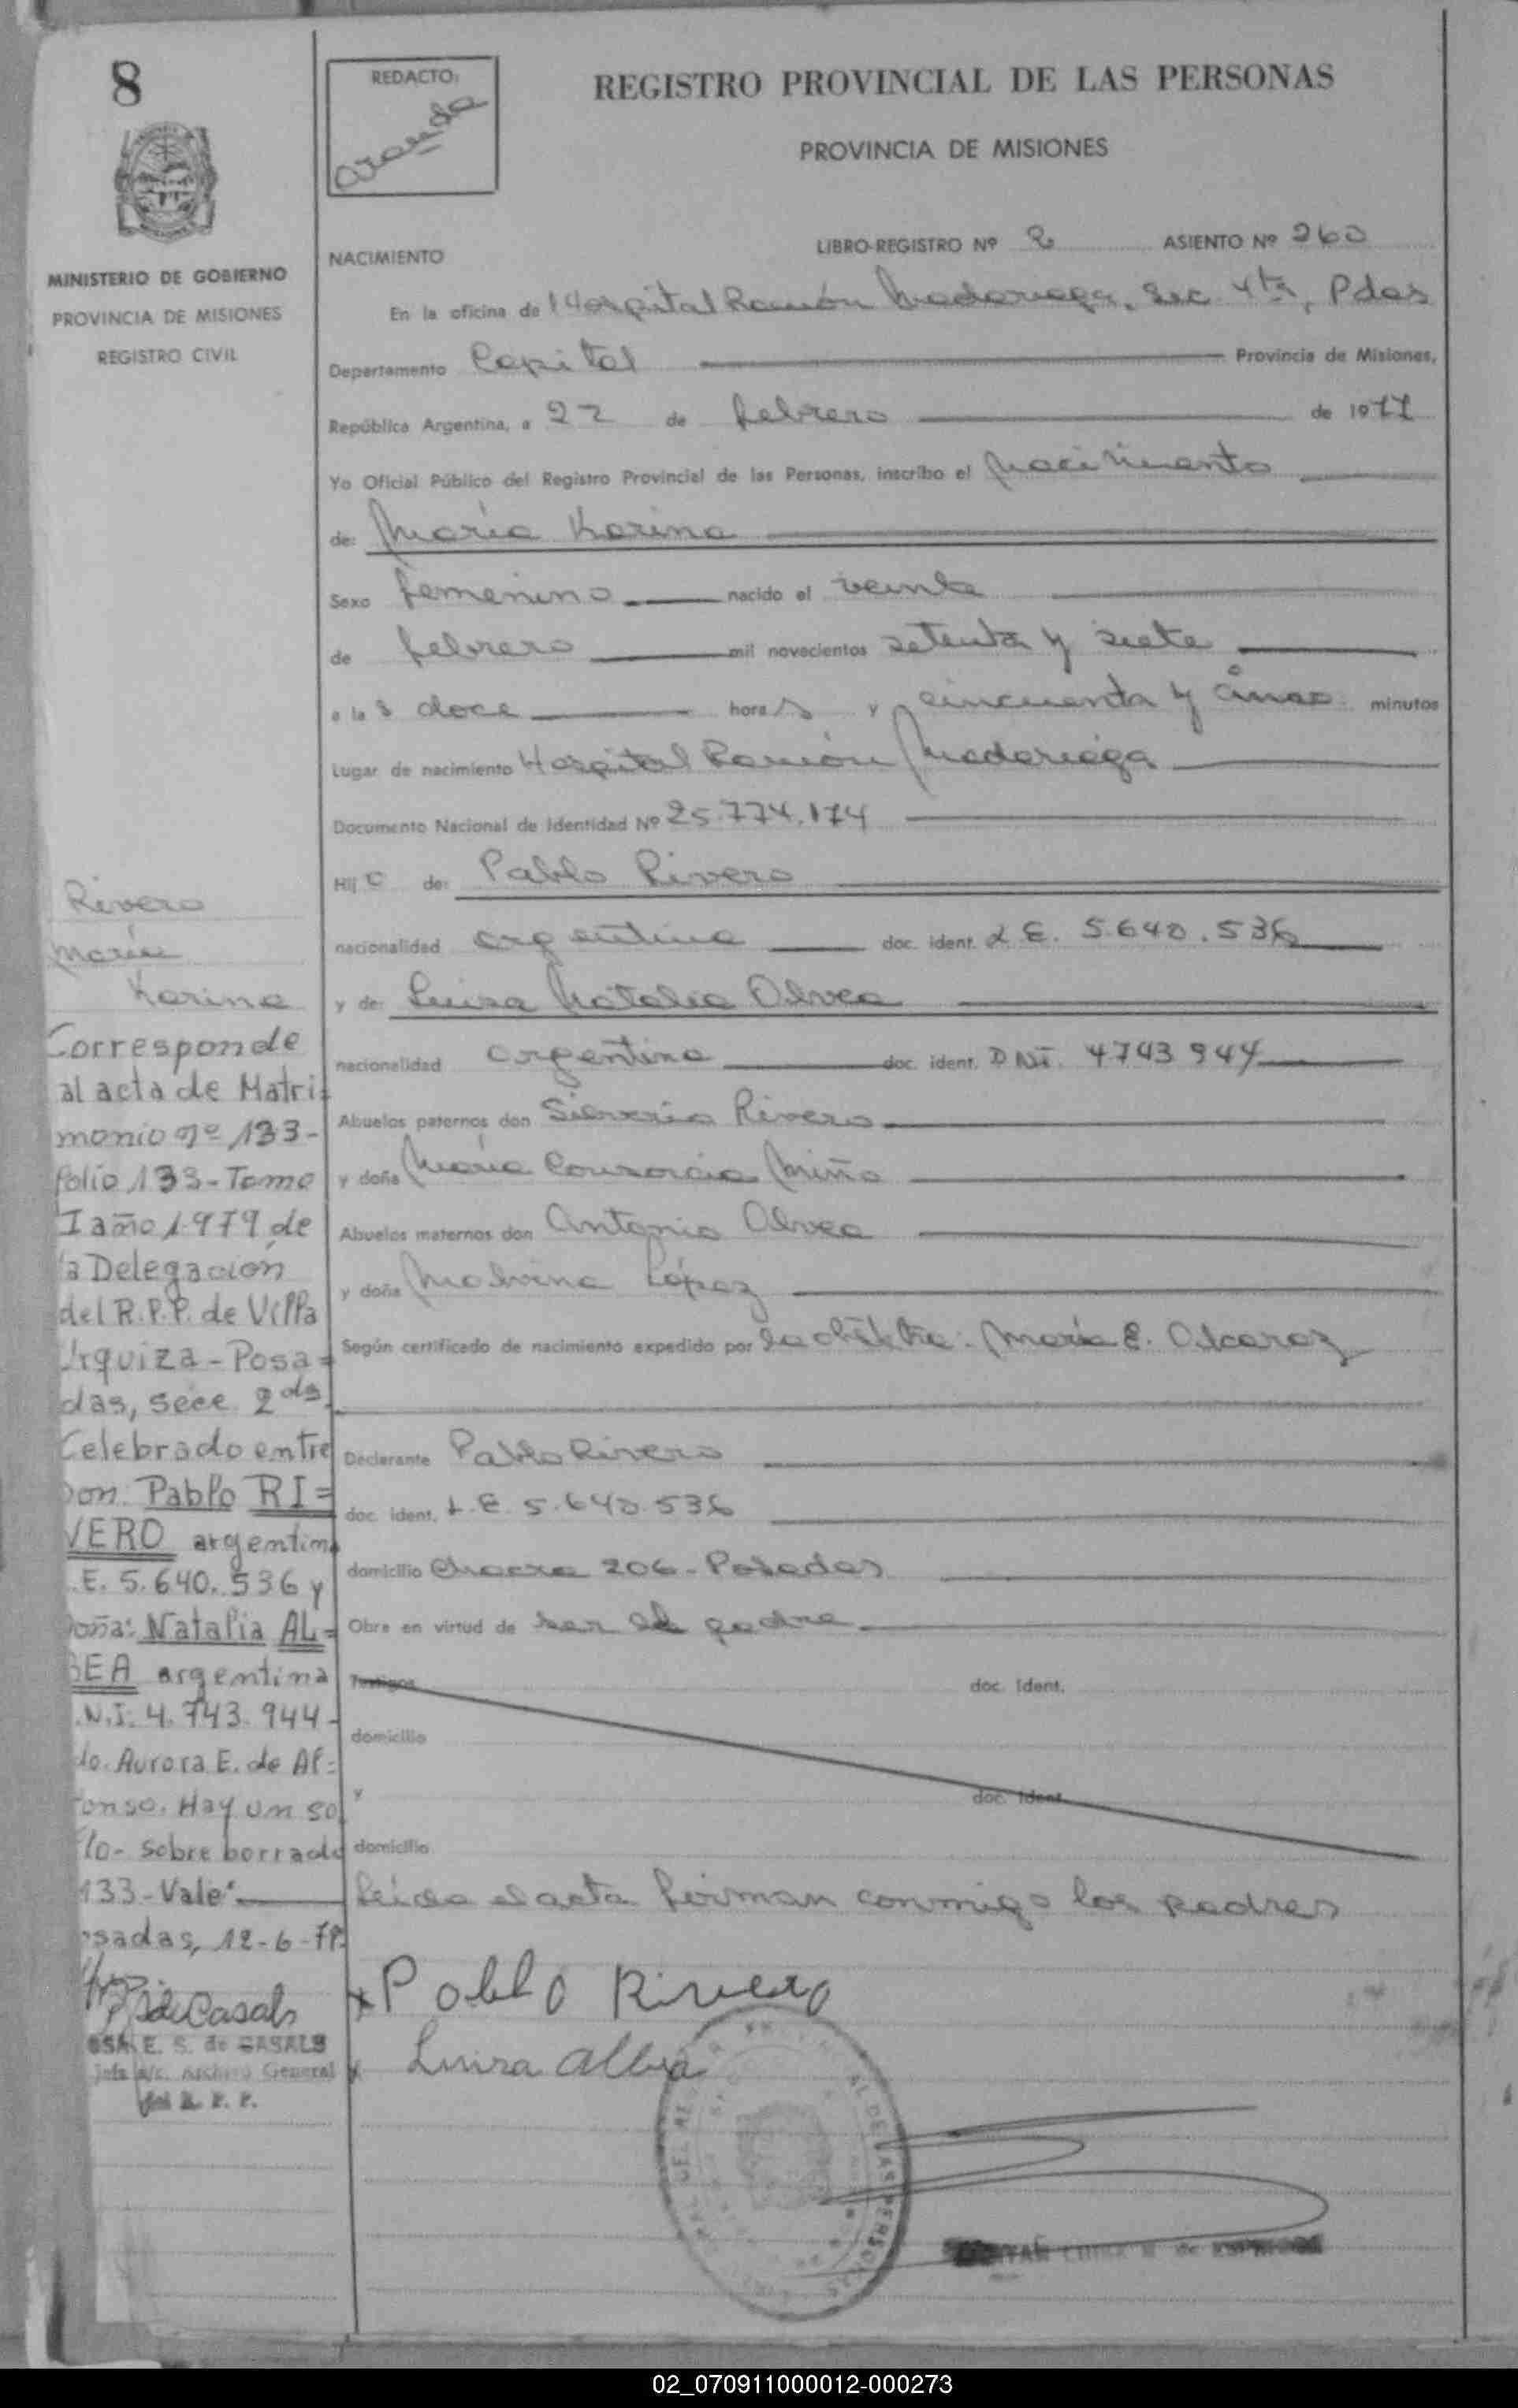 8
REDACTO:
Aranda
REGISTRO PROVINCIAL DE LAS PERSONAS
PROVINCIA DE MISIONES
MINISTERIO DE GOBIERNO
PROVINCIA DE MISIONES
REGISTRO CIVIL
NACIMIENTO
LIBRO-REGISTRO Nº 2 ASIENTO Nº 260
En la oficina de l Hospital Ramón Madariaga, Sec. 4ta, Pdas
Departamento Capital Provincia de Misiones,
República Argentina, a 22 de febrero de 1977
Yo Oficial Público del Registro Provincial de las Personas, inscribo el nacimiento
de: María Karina
Sexo femenino nacido el veinte
de febrero mil novecientos setenta y siete
a las doce horas y cincuenta y cinco minutos
Lugar de nacimiento Hospital Ramón Madariaga
Documento Nacional de Identidad Nº 25.774.174
Hija de: Pablo Rivero
nacionalidad argentina doc. ident. L E. 5.640.536
y de: Luisa Natalia Alvea
nacionalidad argentina doc. ident. DNI. 4743944
Abuelos paternos don Silverio Rivero
y doña María Consorcia Miño
Abuelos maternos don Antonio Alvea
y doña Malvina López
Según certificado de nacimiento expedido por la María E. Alcaraz
Declarante Pablo Rivero
doc. ident. L.E. 5.640.536
domicilio Chacra 206-Posadas
Obre en virtud de ser el padre
Testigos doc. ident.
domicilio
y doc. ident.
domicilio
Leida el acta firman conmigo los padres
Pablo Rivero
Luisa Albea
Rivero
María
Karina
Corresponde
al acta de Matri=
monio nº 133-
folio 133-Tomo
I año 1979 de
la Delegación
del R.P.P. de Villa
Urquiza-Posa=
das, secc. 2da.
Celebrado entre
Don: Pablo RI=
VERO argentino
L.E. 5.640.536 y
Doña: Natalia AL=
BEA argentina
D.N.I. 4.743.944-
do. Aurora E. de Al=
fonso. Hay un se
llo- sobre borrado
133-Vale.
Posadas, 12-6-79.
de Casals
E. S. de CASALS
Jefe a/c. Archivo General
del R. P. P.
02_070911000012-000273